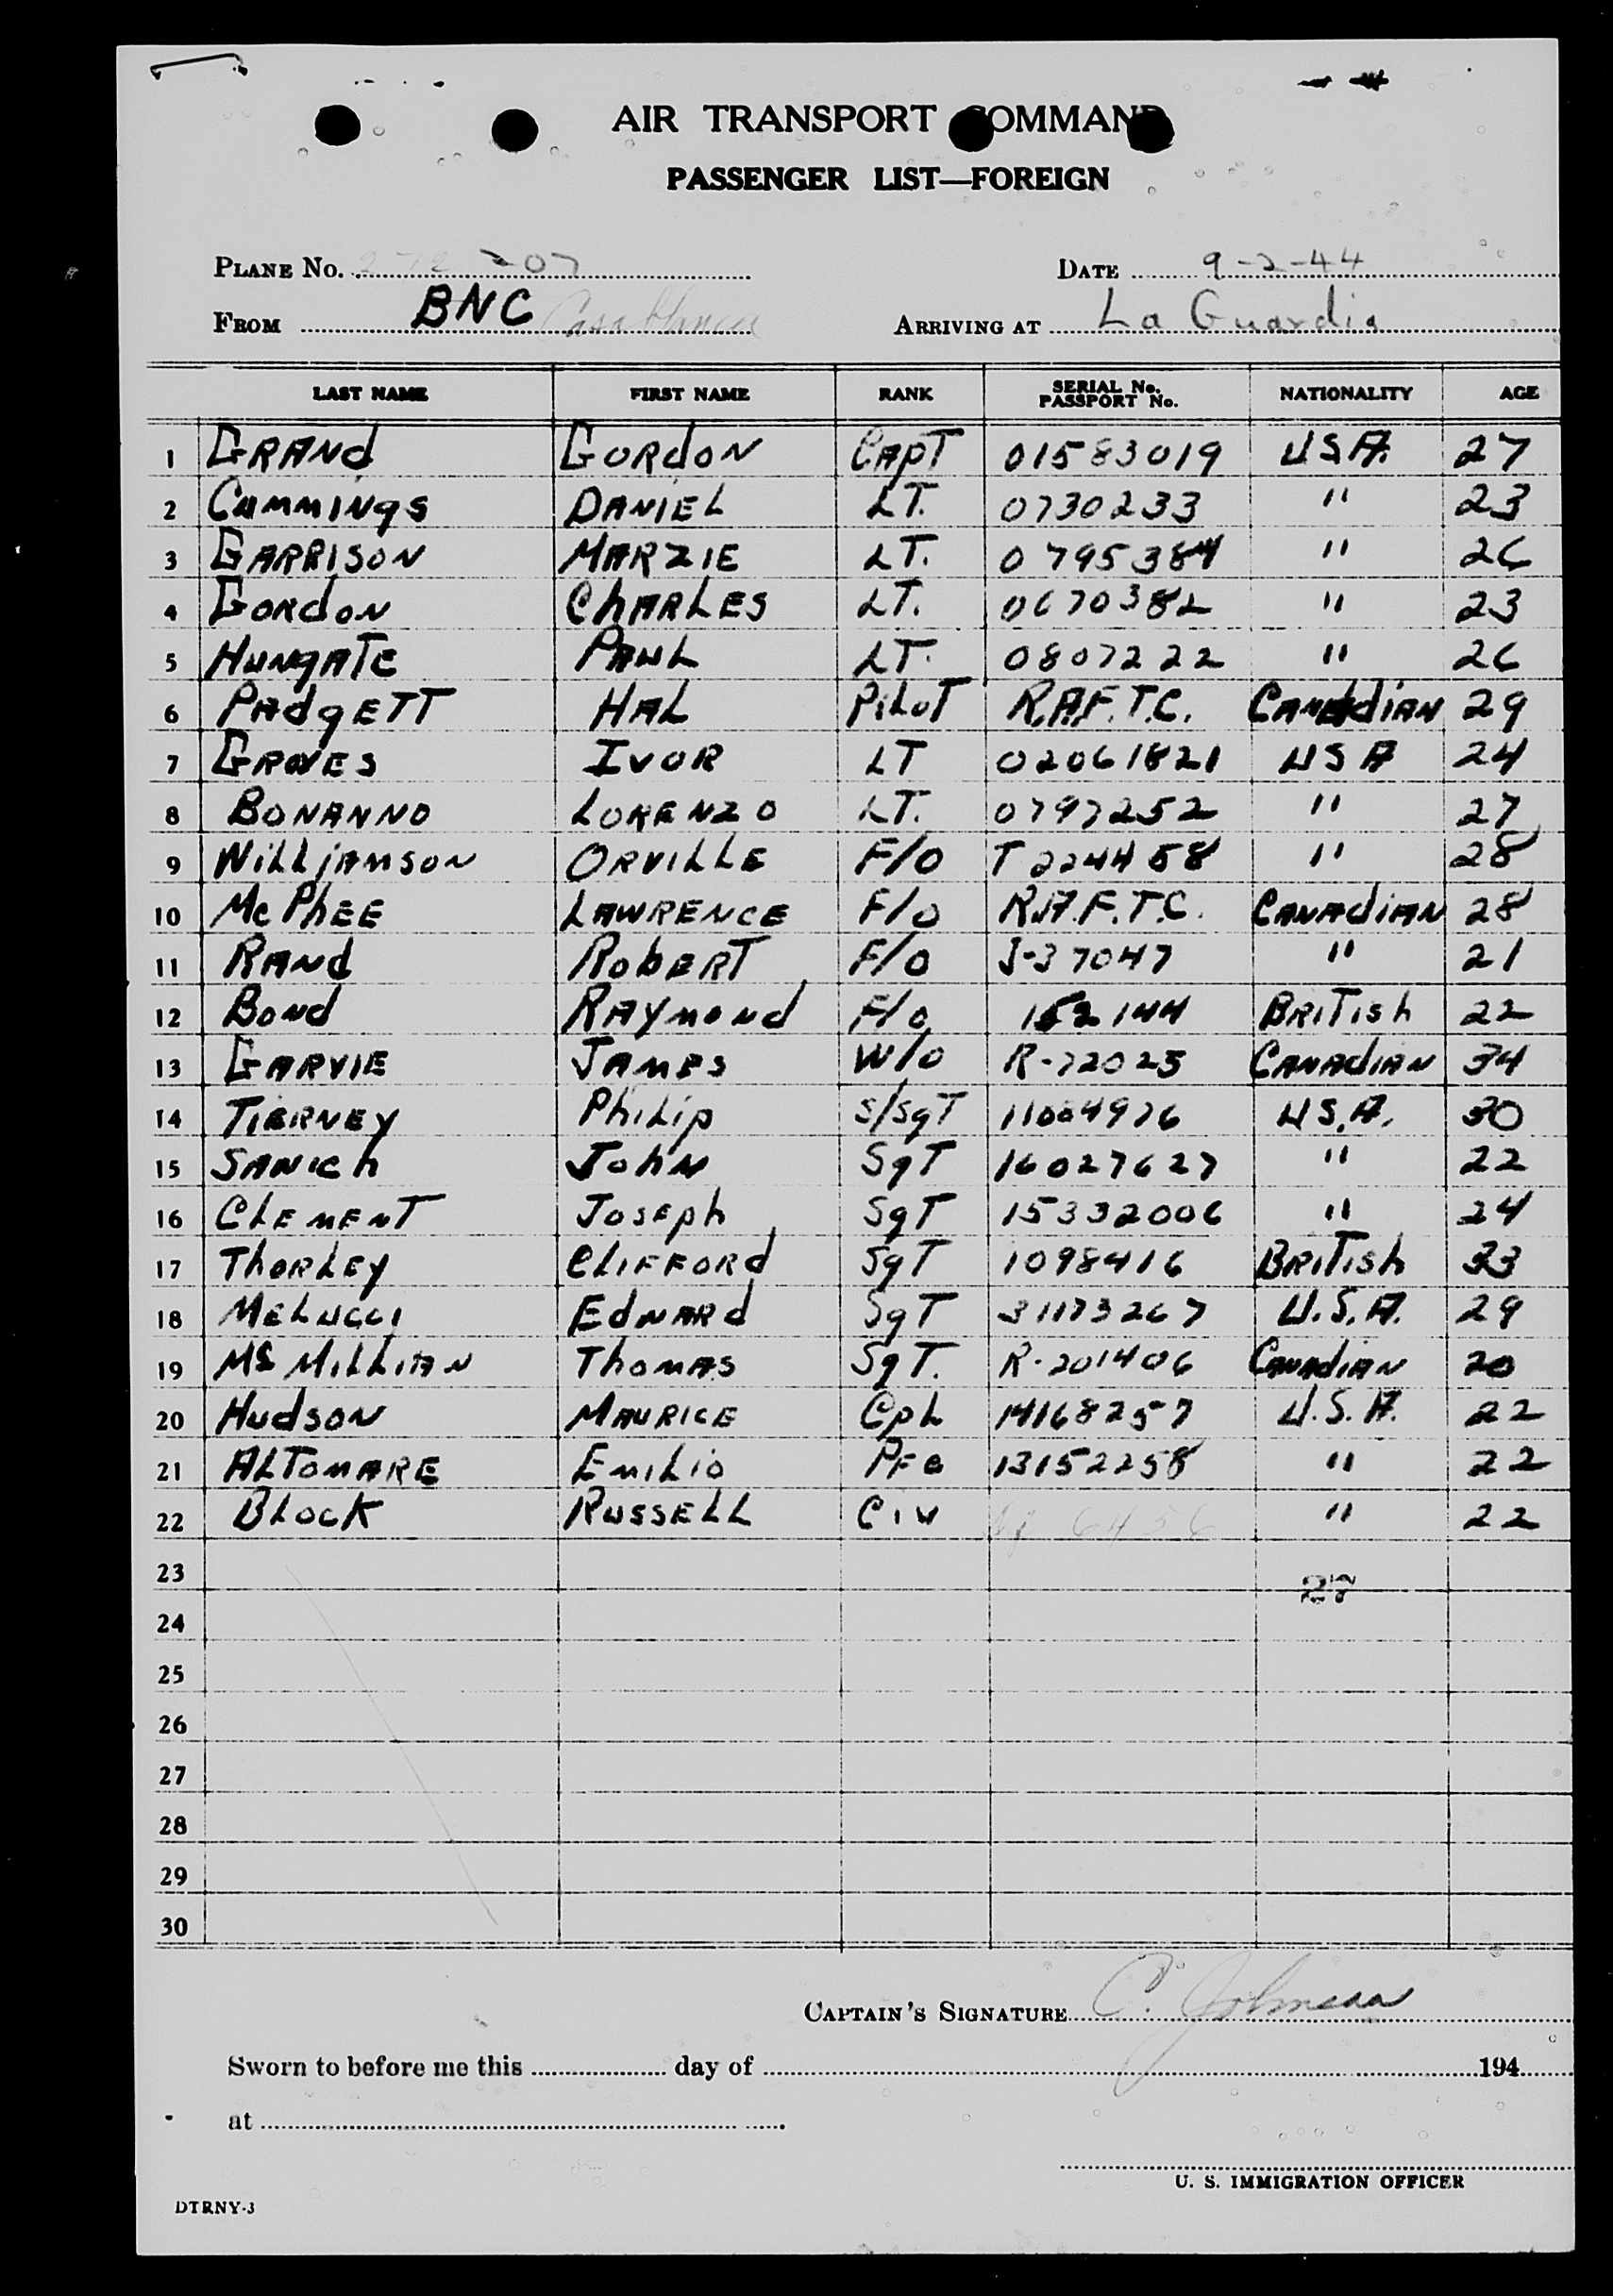 AIR TRANSPORT COMMAND
PASSENGER LIST—FOREIGN
PLANE No. 272 207 DATE 9-2-44
FROM BNC Casablanca ARRIVING AT La Guardia
LAST NAME FIRST NAME RANK SERIAL No. PASSPORT No. NATIONALITY AGE
1 GRANd GORdON CAPT 01583019 USA. 27
2 CUMMINgS DANIEL LT. 0730233 " 23
3 GARRISON MARZIE LT. 0795384 " 26
4 GORdON ChARLES LT. 0670382 " 23
5 HUNgATE PAUL LT. 0807222 " 26
6 PAdgETT HAL PiLoT R.A.F.T.C. CANAdiAN 29
7 GROVES IVOR LT 02061821 USA 24
8 BONANNO LORENZO LT. 0797252 " 27
9 WiLLiAMSON ORVILLE F/O T 224458 " 28
10 McPhEE LAWRENCE F/O R.A.F.T.C. CANAdiAN 28
11 RANd RobERT F/O J-37047 " 21
12 BONd RAYMONd F/O 152144 BRiTish 22
13 GARVIE JAMES W/O R-72025 CANAdiAN 34
14 TiERNEY PhiLip S/SgT 11004976 U.S.A. 30
15 SANich JohN SgT 16027627 " 22
16 CLEMENT JosEph SgT 15332006 " 24
17 ThORLEY CLIFFORd SgT 1098416 BRiTish 33
18 MELUCCI EdWARd SgT 31173267 U.S.A. 29
19 McMiLLIAN ThOMAS SgT. R-201406 CANAdiAN 20
20 HudSON MAURICE CpL 14168257 U.S.A. 22
21 ALTOMARE EMiLio PFC 13152258 " 22
22 BLOCK RUSSELL Civ 6456 " 22
23
24
25
26
27
28
29
30
CAPTAIN'S SIGNATURE C. Johnson
Sworn to before me this day of 194
at
U. S. IMMIGRATION OFFICER
DTRNY-3